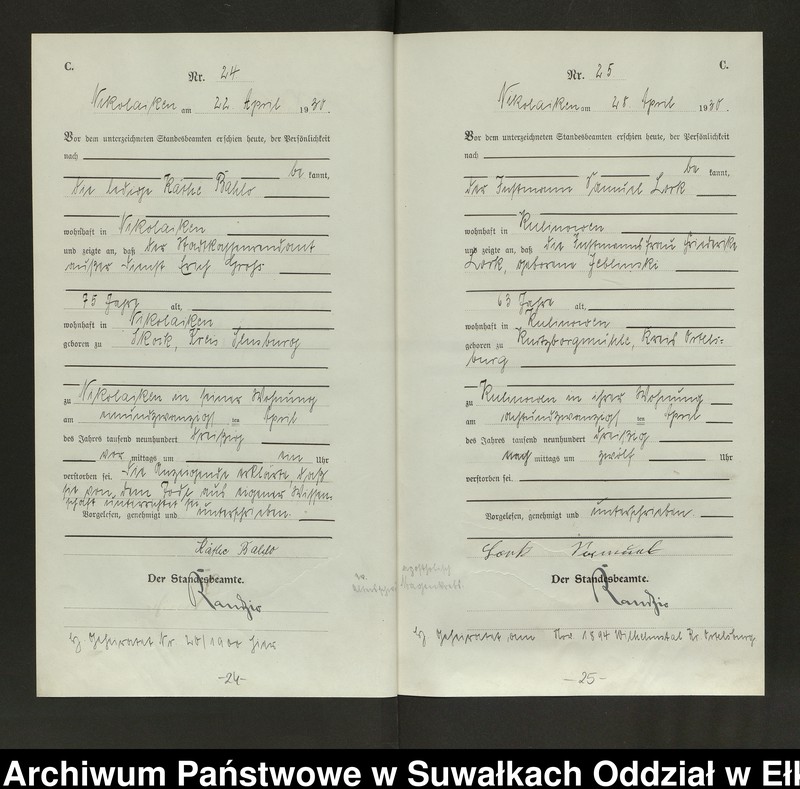 C.
Nr. 24
Nikolaiken am 22 April 1930.
Vor dem unterzeichneten Standesbeamten erschien heute, der Persönlichkeit
nach
be kannt,
die ledige Käthe Bahlo
wohnhaft in Nikolaiken
und zeigte an, daß der Stadtkassenrendant
außer Dienst Erich Grohs
75 Jahre alt,
wohnhaft in Nikolaiken
geboren zu Skock, Kreis Sensburg
zu Nikolaiken in seiner Wohnung
am einundzwanzigst en April
des Jahres tausend neunhundert dreißig
vor mittags um ein Uhr
verstorben sei. Die Anzeigende erklärte, daß
sie von dem Tode aus eigener Wissen-
schaft unterrichtet sei
Vorgelesen, genehmigt und unterschrieben.
Käthe Bahlo
Der Standesbeamte.
Kandzio
geheiratet Nr. 20/1900 hier
-24-
C.
Nr. 25
Nikolaiken am 28 April 1930.
Vor dem unterzeichneten Standesbeamten erschien heute, der Persönlichkeit
nach
be kannt,
der Instmann Samuel Lork
wohnhaft in Kulinowen
und zeigte an, daß die Instmannsfrau Friederike
Lork, geborene Jeblinski
63 Jahre alt,
wohnhaft in Kulinowen
geboren zu Kutzborgmühle, Kreis Ortels-
burg
zu Kulinowen in ihrer Wohnung
am achtundzwanzigst en April
des Jahres tausend neunhundert dreißig
nach mittags um zwölf Uhr
verstorben sei.
Vorgelesen, genehmigt und unterschrieben.
Lork Samuel
Der Standesbeamte.
Kandzio
geheiratet am Nov 1894 Wilhelmstal Kr. Ortelsburg
-25-
Archiwum Państwowe w Suwałkach Oddział w Ełk